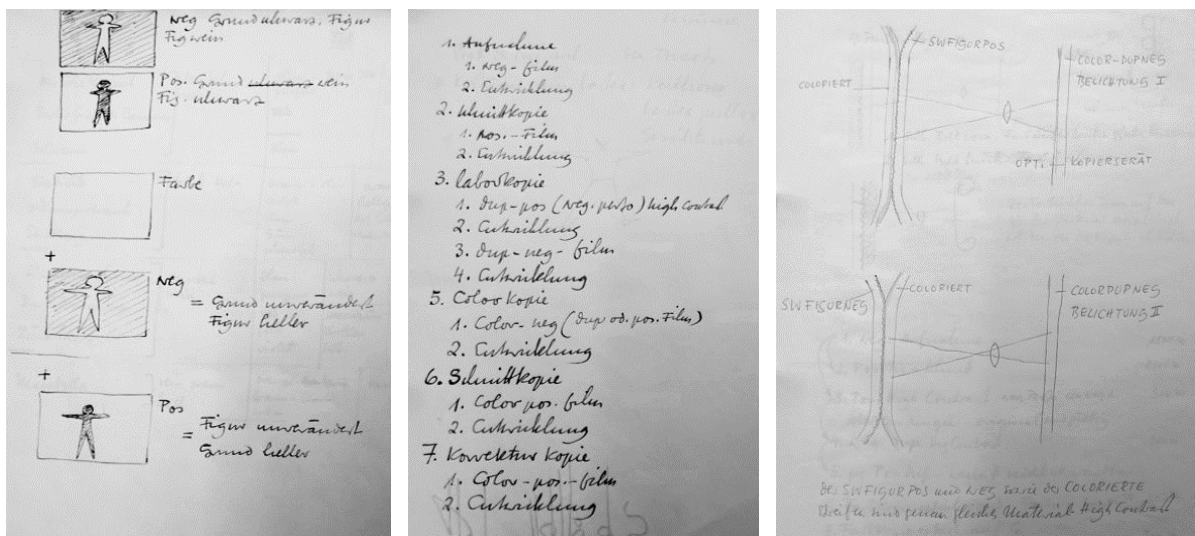 Neg Grund schwarz. Figur
Fig wein
Pos. Grund schwarz wein
Fig. schwarz
Farbe
+
Neg
= Grund unverändert
Figur heller
+
Pos
= Figur unverändert
Grund heller
1. Aufnahme
1. Neg-film
2. Entwicklung
2. Schnittkopie
1. Pos.-Film
2. Entwicklung
3. Laborkopie
1. Dup-pos (Neg. perfo) high Contrast
2. Entwicklung
3. Dup-neg-film
4. Entwicklung
5. Color Kopie
1. Color-neg (Dup od. pos. Film)
2. Entwicklung
6. Schnittkopie
1. Color pos. film
2. Entwicklung
7. Korrektur Kopie
1. Color-pos.-film
2. Entwicklung
SWFIGURPOS
COLORIERT
COLOR-DUPNEG
BELICHTUNG I
OPTI. KOPIERGERÄT
SWFIGURNEG
COLORIERT
COLORDUPNEG
BELICHTUNG II
Der SWFIGURPOS und NEG sowie der COLORIERTE
Streifen sind genau gleiches Material High Contrast